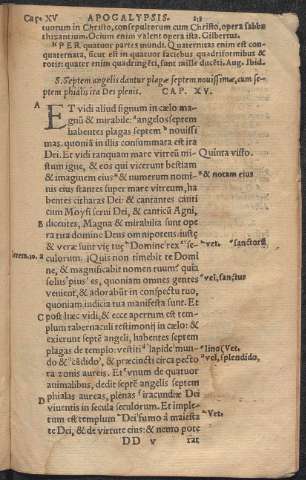 Cap. XV APOCALYPSIS.
tuorum in Christo, consepultorum cum Christo, opera sabba
thisantium. Ocium enim valent opera ista. Gilbertus.
PER quatuor partes mundi. Quaternitas enim est con-
quaternata, sicut est in quatuor faciebus quadriformibus &
rotis: quater enim quadringēti, sunt mille ducēti. Aug. Ibid.
S. Septem angelis dantur plagæ septem nouissimæ, cum se-
ptem phialis iræ Dei plenis. CAP. XV.
A
ET vidi aliud signum in cælo ma-
gnū & mirabile: angelos septem
habentes plagas septem nouissi
mas. quoniā in illis consummata est ira
Dei. Et vidi tanquam mare vitreū mi-
Quinta visio.
stum igne, & eos qui vicerunt bestiam
& imaginem eius & numerum nomi-
& notam eius
nis eius stantes super mare vitreum, ha
bentes citharas Dei: & cantantes canti
cum Moysi serui Dei, & canticū Agni,
B
dicentes, Magna & mirabilia sunt ope
ra tua domine Deus omnipotens. iustę
& veræ sunt vię tuę Domine rex sę-
vet. sanctorū
culorum. Quis non timebit te Domi
ne, & magnificabit nomen tuum? quia
solus pius es, quoniam omnes gentes
vel, sanctus
venient, & adorabūt in conspectu tuo,
quoniam iudicia tua manifesta sunt. Et
C
post hæc vidi, & ecce apertum est tem-
plum tabernaculi testimonij in cælo: &
exierunt septē angeli, habentes septem
plagas de templo: vestiti lapide mun-
lino (Vet.
do & cādido, & præcincti circa pecto
vel, splendido,
ra zonis aureis. Et vnum de quatuor
animalibus, dedit septē angelis septem
D
phialas aureas, plenas iracundiæ Dei
viuentis in secula seculorum. Et imple-
tum est templum Dei sumo à maiesta
Vet.
te Dei, & de virtute eius: & nemo pote
DD v rat